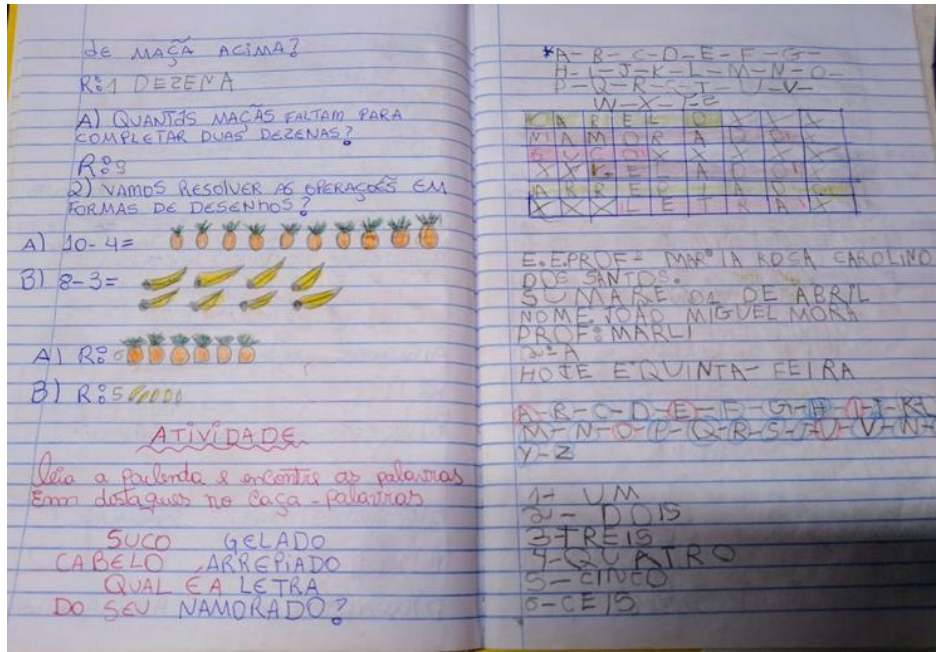 de MAÇÃ ACIMA?
R: 1 DEZENA
A) QUANTAS MAÇÃS FALTAM PARA
COMPLETAR DUAS DEZENAS?
R: 9
2) VAMOS RESOLVER AS OPERAÇÕES EM
FORMAS DE DESENHOS?
A) 10-4=
B) 8-3=
A) R: 6
B) R: 5
ATIVIDADE
leia a parlenda e encontre as palavras
Emm destaques no caça-palavras
SUCO GELADO
CABELO ARREPIADO
QUAL É A LETRA
DO SEU NAMORADO?
*A-B-C-D-E-F-G-
H-I-J-K-L-M-N-O-
P-Q-R-S-T-U-V-
W-X-Y-Z
C A B E L O X X X
N A M O R A D O X
S U C O X X X X X
X X G E L A D O
A R R E P I A D O
X X X L E T R A X
E.E.PROFª MARIA ROSA CAROLINO
DOS SANTOS.
SUMARE 01 DE ABRIL
NOME JOÃO MIGUEL MORA
PROF: MARLI
2º A
HOJE E QUINTA-FEIRA
A-B-C-D-E-F-G-H-I-J-K-L
M-N-O-P-Q-R-S-T-U-V-W-X
Y-Z
1- UM
2- DOIS
3-TREIS
4-QUATRO
5-CINCO
6-CEIS